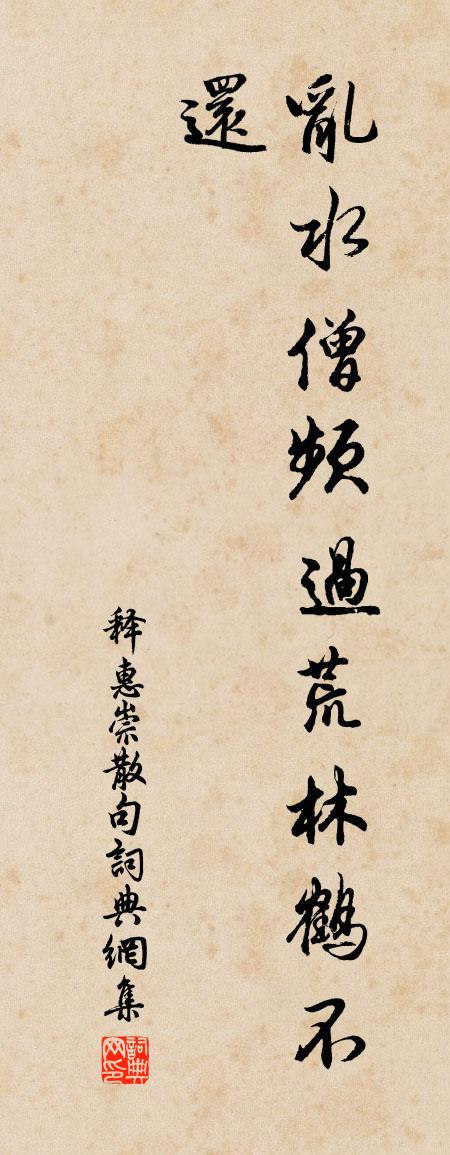 亂水僧頻過荒林鶴不
還
釋惠崇散句詞典網集
詞典
网印